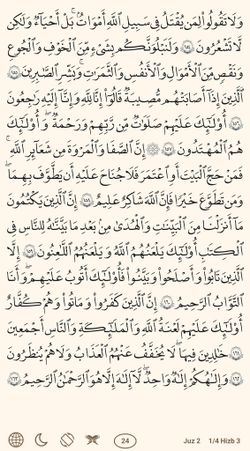 وَلَا تَقُولُوا۟ لِمَن يُقْتَلُ فِى سَبِيلِ ٱللَّهِ أَمْوَٰتٌۢ ۚ بَلْ أَحْيَآءٌ وَلَٰكِن
لَّا تَشْعُرُونَ ١٥٤ وَلَنَبْلُوَنَّكُم بِشَىْءٍ مِّنَ ٱلْخَوْفِ وَٱلْجُوعِ
وَنَقْصٍ مِّنَ ٱلْأَمْوَٰلِ وَٱلْأَنفُسِ وَٱلثَّمَرَٰتِ ۗ وَبَشِّرِ ٱلصَّٰبِرِينَ ١٥٥
ٱلَّذِينَ إِذَآ أَصَٰبَتْهُم مُّصِيبَةٌ قَالُوٓا۟ إِنَّا لِلَّهِ وَإِنَّآ إِلَيْهِ رَٰجِعُونَ
١٥٦ أُو۟لَٰٓئِكَ عَلَيْهِمْ صَلَوَٰتٌ مِّن رَّبِّهِمْ وَرَحْمَةٌ ۖ وَأُو۟لَٰٓئِكَ
هُمُ ٱلْمُهْتَدُونَ ١٥٧ ۞ إِنَّ ٱلصَّفَا وَٱلْمَرْوَةَ مِن شَعَآئِرِ ٱللَّهِ ۖ
فَمَنْ حَجَّ ٱلْبَيْتَ أَوِ ٱعْتَمَرَ فَلَا جُنَاحَ عَلَيْهِ أَن يَطَّوَّفَ بِهِمَا ۚ
وَمَن تَطَوَّعَ خَيْرًا فَإِنَّ ٱللَّهَ شَاكِرٌ عَلِيمٌ ١٥٨ إِنَّ ٱلَّذِينَ يَكْتُمُونَ
مَآ أَنزَلْنَا مِنَ ٱلْبَيِّنَٰتِ وَٱلْهُدَىٰ مِنۢ بَعْدِ مَا بَيَّنَّٰهُ لِلنَّاسِ فِى
ٱلْكِتَٰبِ ۙ أُو۟لَٰٓئِكَ يَلْعَنُهُمُ ٱللَّهُ وَيَلْعَنُهُمُ ٱللَّٰعِنُونَ ١٥٩ إِلَّا
ٱلَّذِينَ تَابُوا۟ وَأَصْلَحُوا۟ وَبَيَّنُوا۟ فَأُو۟لَٰٓئِكَ أَتُوبُ عَلَيْهِمْ ۚ وَأَنَا
ٱلتَّوَّابُ ٱلرَّحِيمُ ١٦٠ إِنَّ ٱلَّذِينَ كَفَرُوا۟ وَمَاتُوا۟ وَهُمْ كُفَّارٌ
أُو۟لَٰٓئِكَ عَلَيْهِمْ لَعْنَةُ ٱللَّهِ وَٱلْمَلَٰٓئِكَةِ وَٱلنَّاسِ أَجْمَعِينَ
١٦١ خَٰلِدِينَ فِيهَا ۖ لَا يُخَفَّفُ عَنْهُمُ ٱلْعَذَابُ وَلَا هُمْ يُنظَرُونَ
١٦٢ وَإِلَٰهُكُمْ إِلَٰهٌ وَٰحِدٌ ۖ لَّآ إِلَٰهَ إِلَّا هُوَ ٱلرَّحْمَٰنُ ٱلرَّحِيمُ ١٦٣
24 Juz 2 1/4 Hizb 3